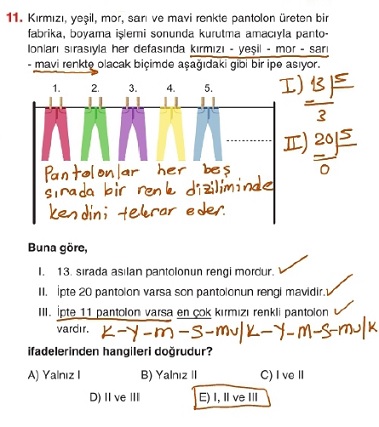 11. Kırmızı, yeşil, mor, sarı ve mavi renkte pantolon üreten bir
fabrika, boyama işlemi sonunda kurutma amacıyla panto-
lonları sırasıyla her defasında kırmızı - yeşil - mor - sarı
- mavi renkte olacak biçimde aşağıdaki gibi bir ipe asıyor.
1. 2. 3. 4. 5.
I) 13 5
3
II) 20 5
0
Pantolonlar her beş
sırada bir renk diziliminde
kendini tekrar eder.
Buna göre,
I. 13. sırada asılan pantolonun rengi mordur.
II. İpte 20 pantolon varsa son pantolonun rengi mavidir.
III. İpte 11 pantolon varsa en çok kırmızı renkli pantolon
vardır.
K-Y-m-S-mv/K-Y-m-S-mv/K
ifadelerinden hangileri doğrudur?
A) Yalnız I B) Yalnız II C) I ve II
D) II ve III E) I, II ve III